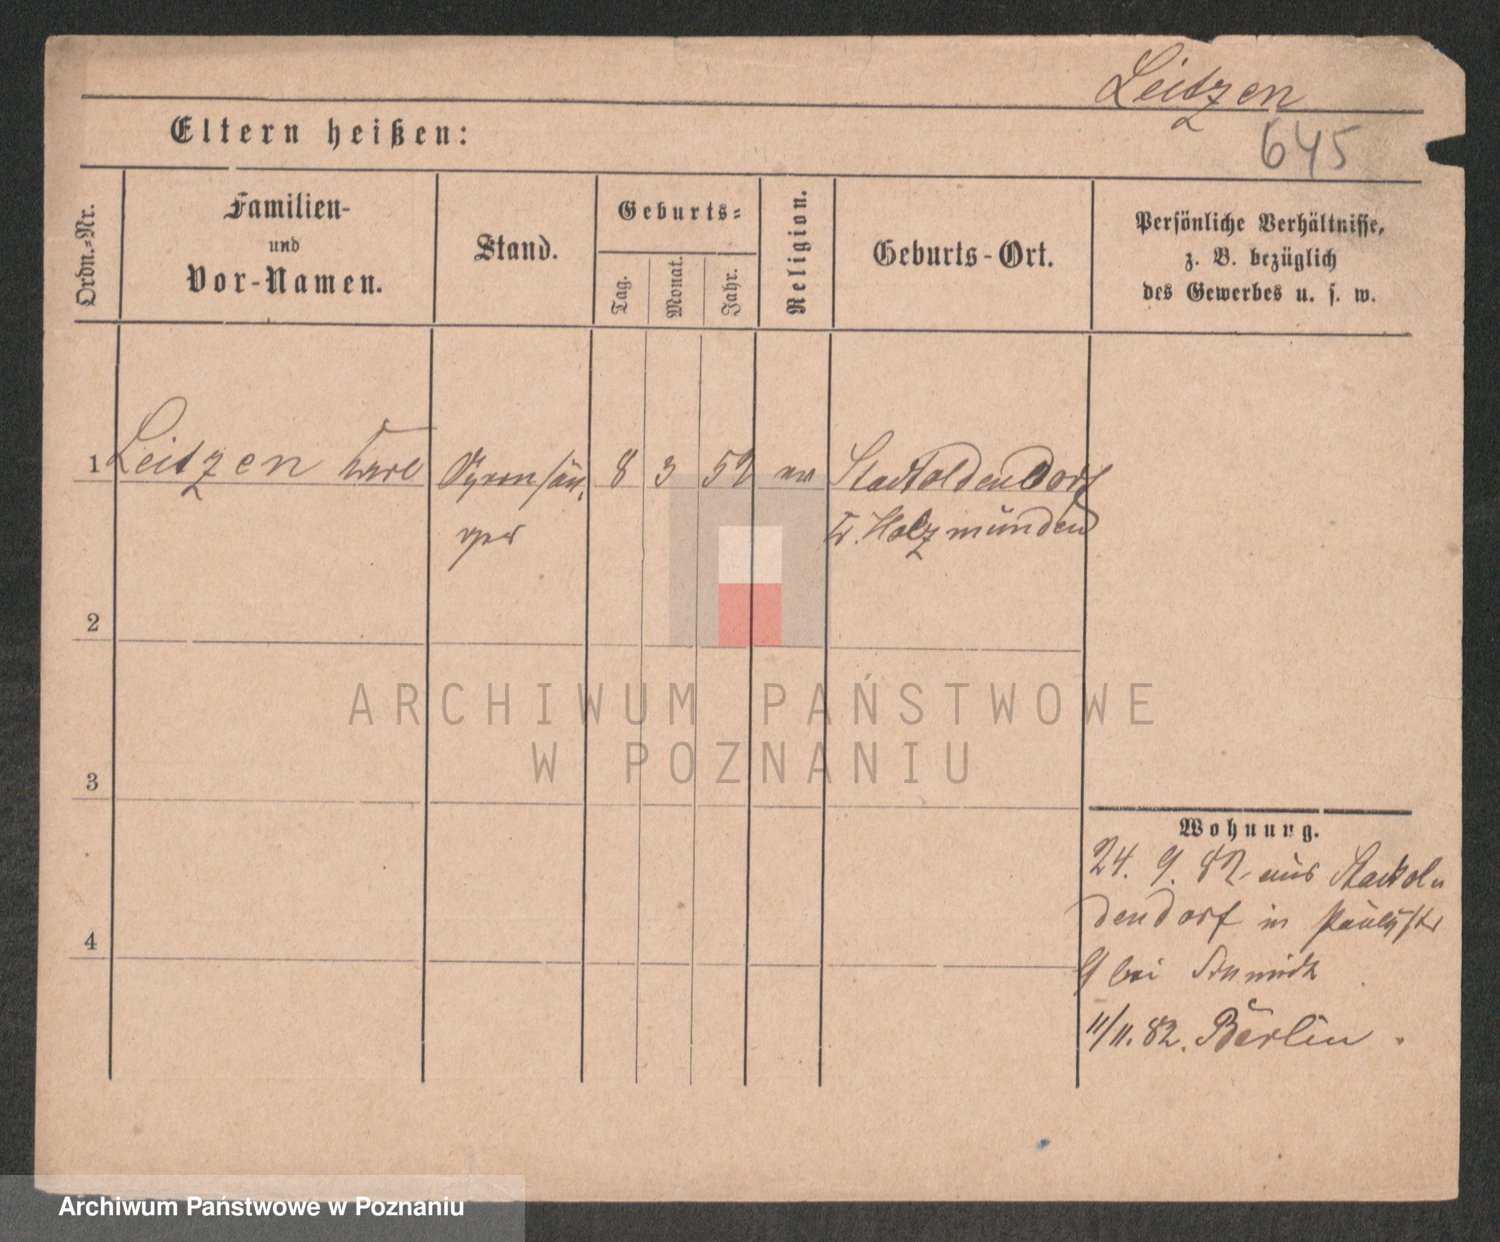 Leitzen
645
Eltern heißen:
Ordn.-Nr.
Familien-
und
Vor-Namen.
Stand.
Geburts-
Tag.
Monat.
Jahr.
Religion.
Geburts-Ort.
Persönliche Verhältnisse,
z. B. bezüglich
des Gewerbes u. s. w.
1 Leitzen Karl 8 3 52 ev Stadtoldendorf
Kr. Holzmünden
2
3
4
Wohnung.
24. 9. 82 aus Stadtol-
dendorf in Paulistr
9 bei Schmidt
11/11. 82. Berlin.
ARCHIWUM PAŃSTWOWE
W POZNANIU
Archiwum Państwowe w Poznaniu